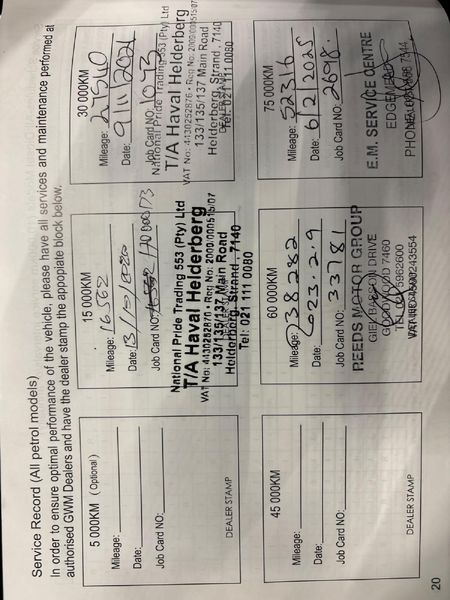 Service Record (All petrol models)
In order to ensure optimal performance of the vehicle, please have all services and maintenance performed at
authorised GWM Dealers and have the dealer stamp the appopiate block below.
5 000KM (Optional)
Mileage:
Date:
Job Card NO:
DEALER STAMP
15 000KM
Mileage: 16562
Date:
Job Card NO:
National Pride Trading 553 (Pty) Ltd
T/A Haval Helderberg
VAT No: 4430252876 • Reg No: 2009/001515/07
133/135/137 Main Road
Helderberg, Strand, 7140
Tel: 021 111 0080
30 000KM
Mileage: 27540
Date: 9/11/2021
Job Card NO: 1073
National Pride Trading 553 (Pty) Ltd
T/A Haval Helderberg
VAT No: 4430252876 • Reg No: 2009/001515/07
133/135/137 Main Road
Helderberg, Strand, 7140
Tel: 021 111 0080
45 000KM
Mileage:
Date:
Job Card NO:
DEALER STAMP
60 000KM
Mileage: 38282
Date: 2023.2.9
Job Card NO: 33781
REEDS MOTOR GROUP
DRIVE
GOODWOOD 7460
75 000KM
Mileage: 52316
Date: 6/2/2025
Job Card NO: 2698.
E.M. SERVICE CENTRE
PHONE:
20